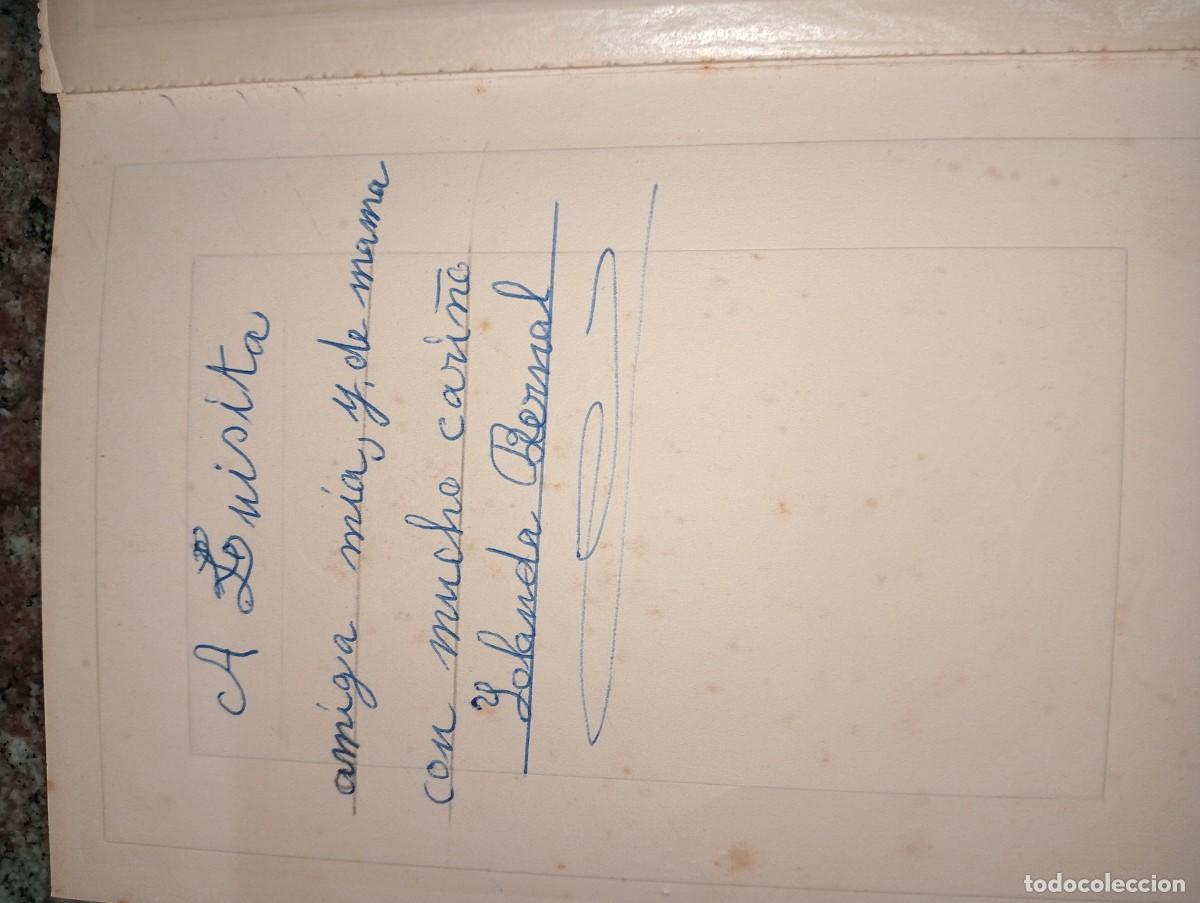 A Luisita
amiga mía, y, de mama
con mucho cariño
Yolanda Bernal
todocoleccion